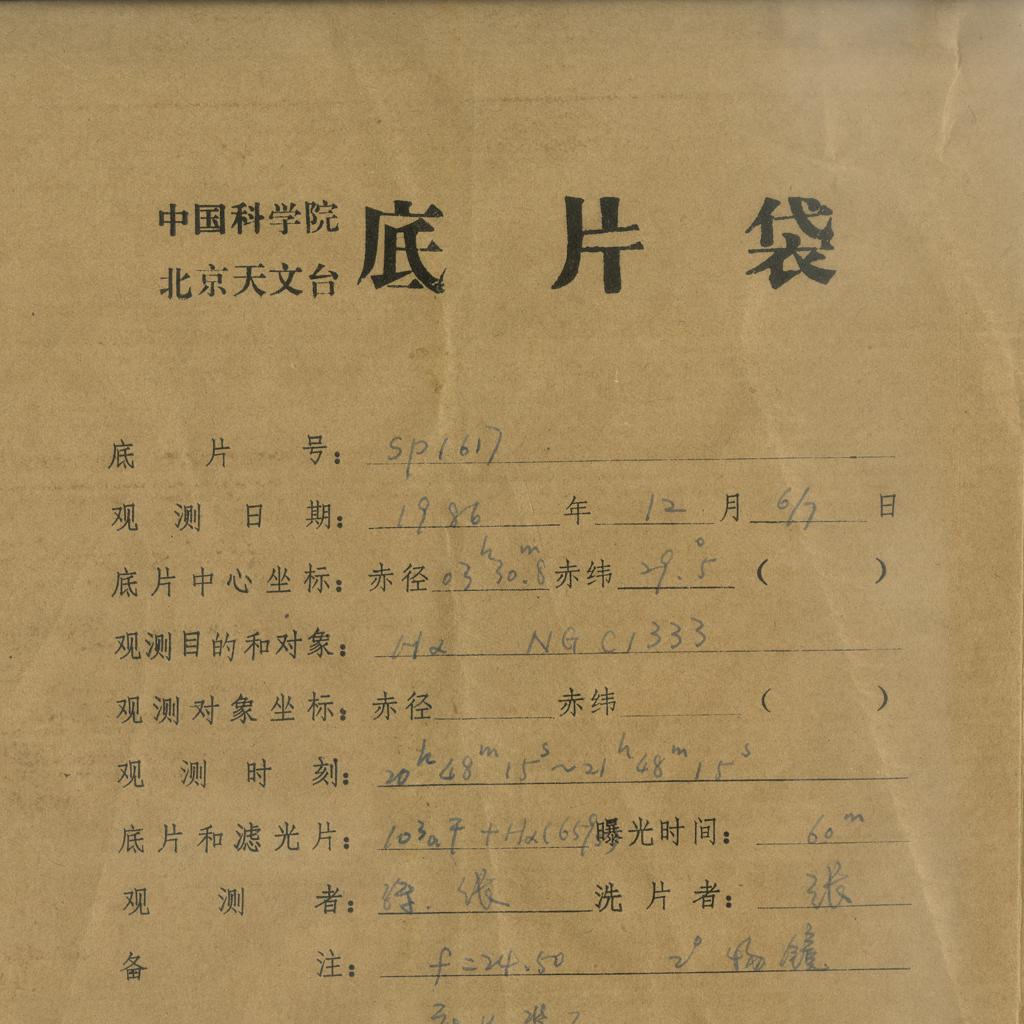 中国科学院
北京天文台 底片袋
底片号：sp1617
观测日期：1986年12月6/7日
底片中心坐标：赤径03ʰ30ᵐ.8赤纬29°.5（ ）
观测目的和对象：Hα NGC1333
观测对象坐标：赤径 赤纬 （ ）
观测时刻：20ʰ48ᵐ15ˢ～21ʰ48ᵐ15ˢ
底片和滤光片：103aF+Hα 曝光时间：60ᵐ
观测者：徐.张 洗片者：张
备注：f=24.50 2°物镜